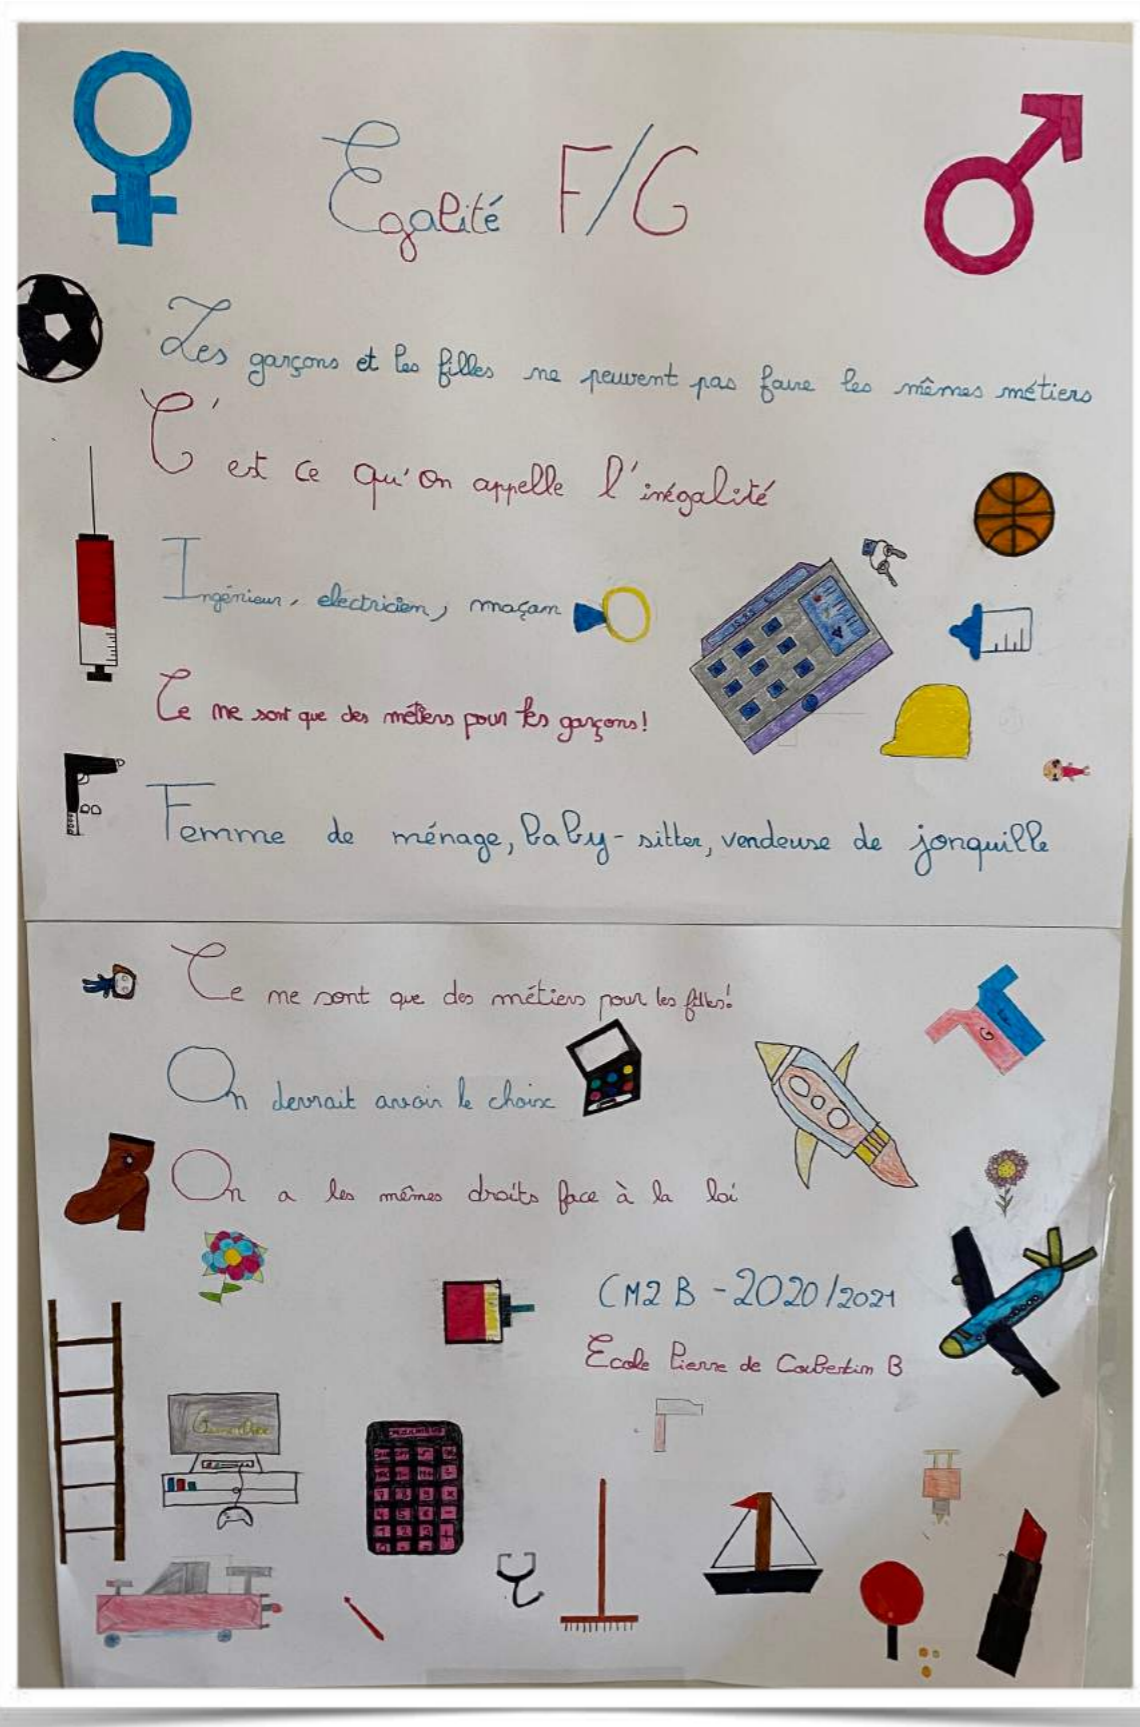 Egalité F/G
Les garçons et les filles ne peuvent pas faire les mêmes métiers
C'est ce qu'on appelle l'inégalité
Ingénieur, electricien, maçam
Ce me sont que des métiers pour les garçons!
Femme de ménage, baby-sitter, vendeuse de jonquille
Ce me sont que des métiers pour les filles!
On devrait avoir le choix
G
On a les mêmes droits face à la loi
CM2 B - 2020/2021
Ecole Pierre de Coubertim B